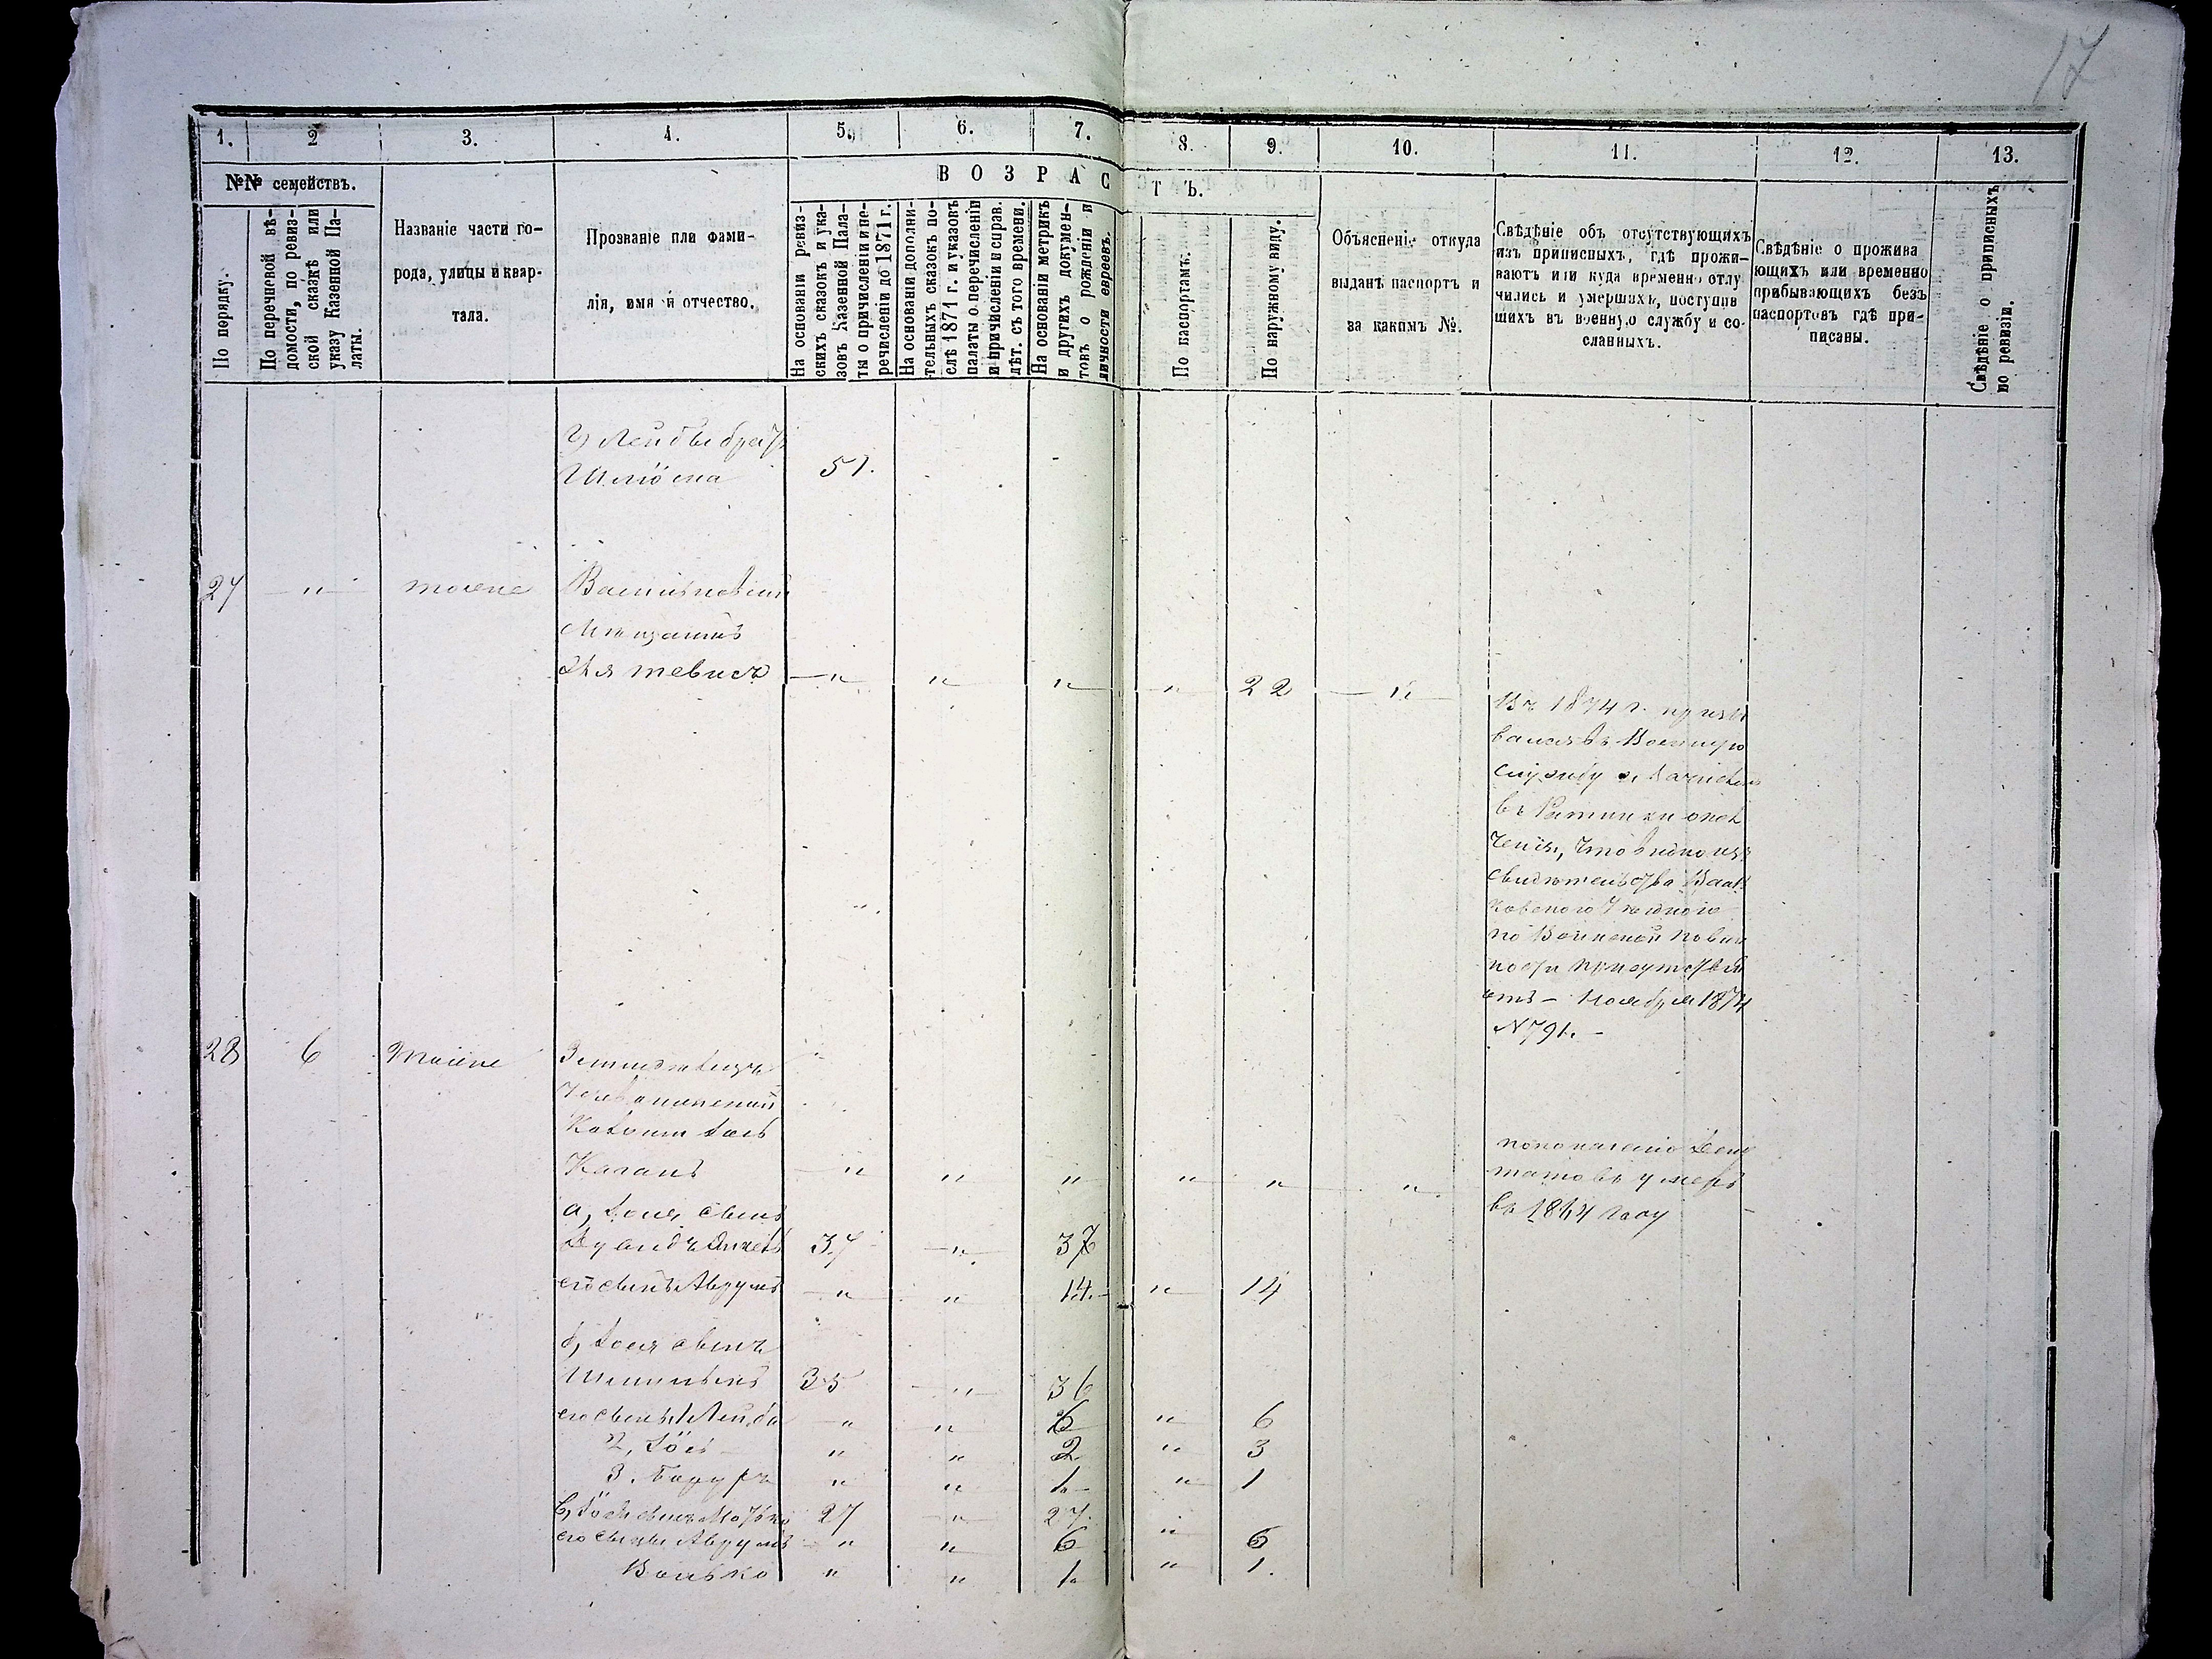 17
1. 2 3. 4. 5. 6. 7. 8. 9. 10. 11. 12. 13.
№№ семействъ.
В О З Р А С Т Ъ.
По порядку.
По перечневой вѣ-
домости, по ревиз-
ской сказкѣ или
указу Казенной Па-
латы.
Названіе части го-
рода, улицы и квар-
тала.
Прозваніе или фами-
лія, имя и отчество.
На основаніи ревиз-
скихъ сказокъ и ука-
зовъ Казенной Пала-
ты о причисленіи и пе-
речисленіи до 1871 г.
На основаніи дополни-
тельныхъ сказокъ по-
слѣ 1871 г. и указовъ
палаты о перечисленіи
и причисленіи и справ.
лѣт. съ того времени.
На основаніи метрикъ
и другихъ докумен-
товъ о рожденіи и
личности евреевъ.
По паспортамъ.
По наружному виду.
Объясненіе откуда
выданъ паспортъ и
за какимъ №.
Свѣдѣніе объ отсутствующихъ
изъ приписныхъ, гдѣ прожи-
ваютъ или куда временно отлу
чились и умершихъ, поступив
шихъ въ военную службу и со-
сланныхъ.
Свѣдѣніе о прожива
ющихъ или временно
прибывающихъ безъ
паспортовъ гдѣ при-
писаны.
Свѣдѣніе о приписныхъ
по ревизіи.
г) Лейбы братъ
Шлiома 51.
27 " тоже
Мѣщанинъ
" " " " 22 "
Въ 1874 г. призы
вался въ Военную
службу и зачисленъ
въ Ратники опол
ченія, что видно изъ
свидѣтельства
Уѣзднаго
по Воинской повин
ности присутствія
отъ - Ноября 1874
№ 791. -
28 6 тоже
Каганъ " " " " " "
по показанію Депу
татовъ умеръ
въ 1864 году
а, Іося сынъ
37 " 37
его сынъ Аврумъ " " 14. " 14
б, Іося сынъ
Шмилыкъ 35 " 36
его сынъ 1 Лейба " " 6 " 6
2, Іось " " 2 " 3
3. Барухъ " " 1 " 1
в, Іося сынъ Мотько 27 " 27. "
его сынъ Аврумъ " " 6 6
Волько " " 1 " 1.